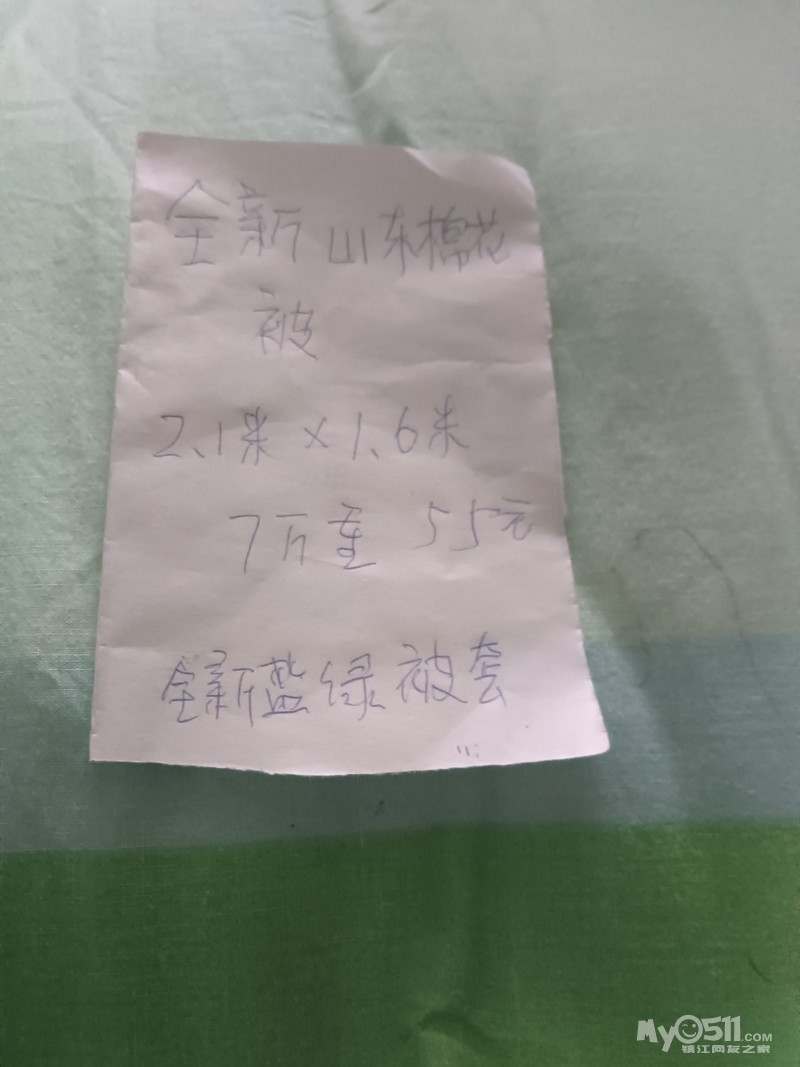 全新山东棉花
被
2.1米×1.6米
7斤重 55元
全新蓝绿被套
My0511.COM
镇江网友之家